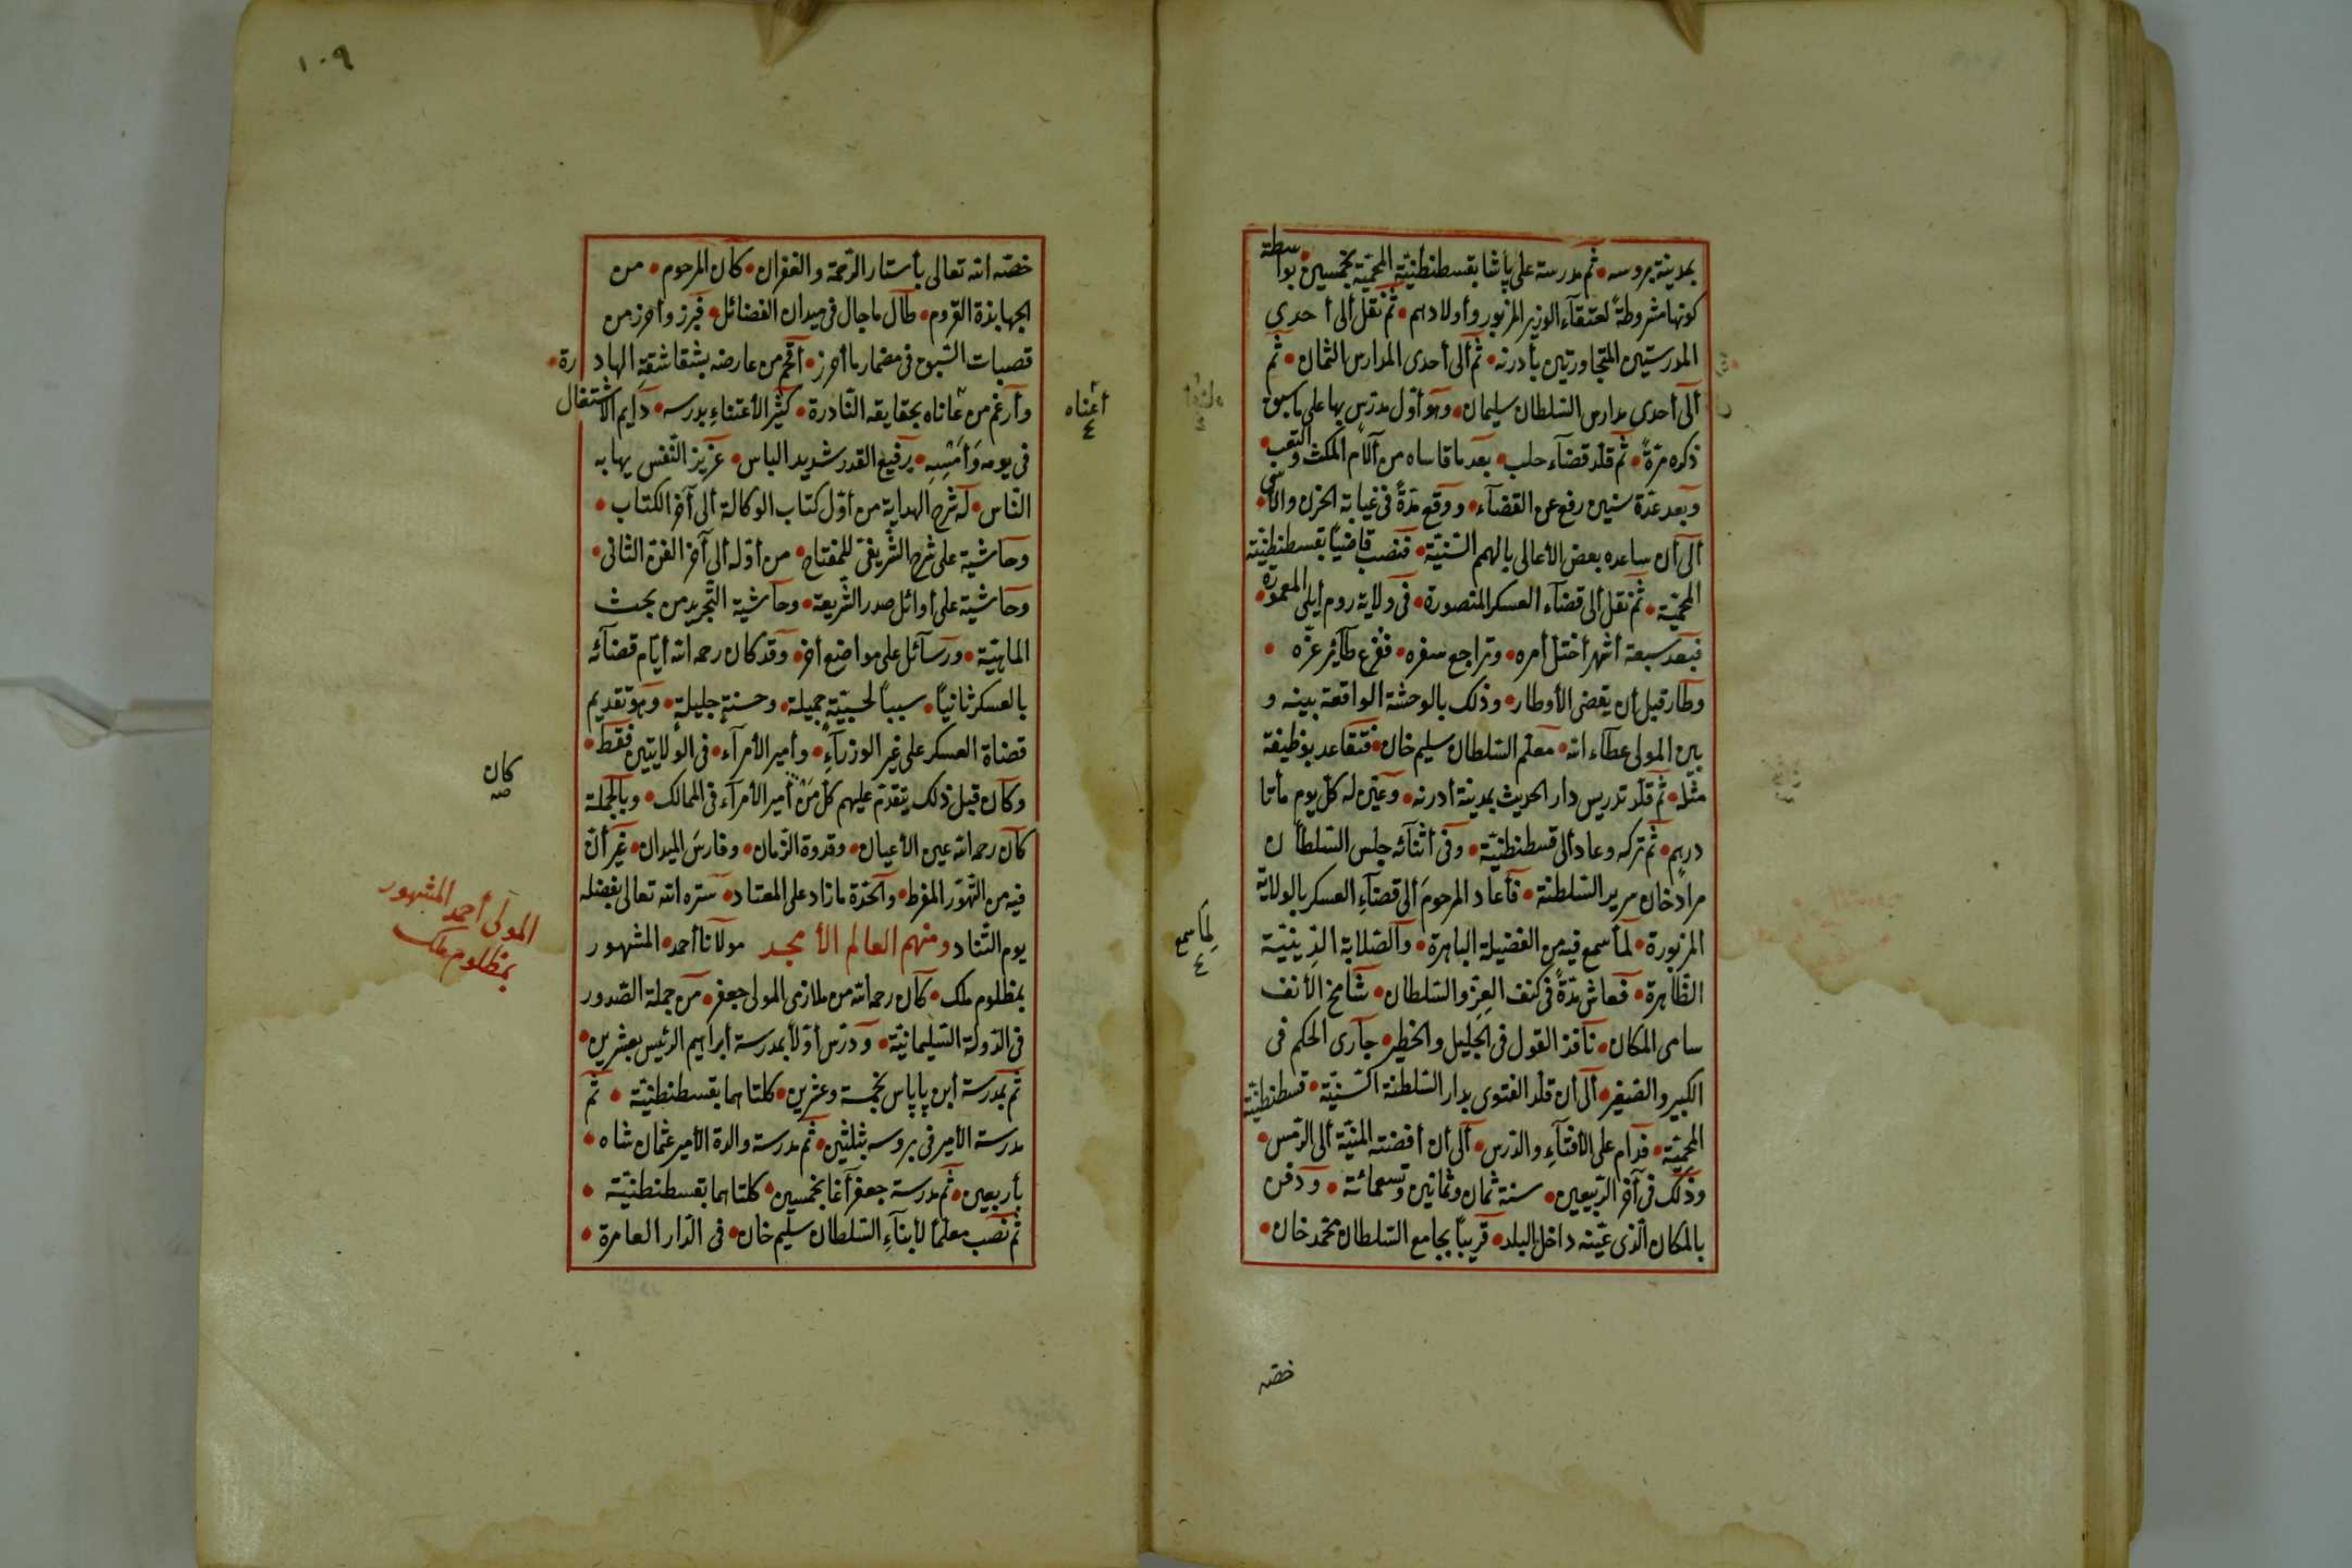 بمدينة بروسه • ثم مدرسة على پاشا بقسطنطنيّة المحميّة بخمسين • بواسطة
كونها مشروطةً لعتقآء الوزير المزبور وأولادهم • ثم نقل ألى أحدى
المدرستين المتجاورتين بأدرنه • ثم ألى أحدى المدارس الثمان • ثم
ألى أحدى مدارس السّلطان سليمان • وهو أوّل مدرّس بها على ما سبق
ذكره مرّةً • ثم قلّد قضآء حلب • بعد ما قاساه من آلآم المكث والتعب •
وبعد عدّة سنين رفع عن القضآء • ووقع مدّةً فى غيابة الحزن والأسى •
ألى أن ساعده بعض الأعالى بالهمم السّنيّة • فنصب قاضياً بقسطنطنيّة
المحميّة • ثم نقل ألى قضآء العسكر المنصورة • فى ولاية روم أيلى المعمورة •
فبعد سبعة أشهر أختلّ أمره • وتراجع سفره • ففزع طآئر عزّه •
وطار قبل أن يقضى الأوطار • وذلك بالوحشة الواقعة بينه و
بين المولى عطآء الله • معلّم السّلطان سليم خان • فتقاعد بوظيفة
مثله • ثم قلّد تدريس دار الحديث بمدينة أدرنه • وعيّن له كلّ يوم مأتا
درهم • ثم تركه وعاد ألى قسطنطنيّة • وفى أثنآئه جلس السّلطان
مراد خان سرير السّلطنة • فأعاد المرحوم ألى قضآء العسكر بالولاية
المزبورة • لما سمع فيه من الفضيلة الباهرة • والصّلابة الدّينيّة
الظّاهرة • فعاش مدّةً فى كنف العزّ والسّلطان • شامخ الأنف
سامى المكان • نافذ القول فى الجليل والخطير • جارى الحكم فى
الكبير والصّغير • ألى أن قلّد الفتوى بدار السّلطنة السّنيّة • قسطنطنيّة
المحميّة • فدام على الأفتآء والدّرس • ألى أن أفضته المنيّة ألى الرّمس •
وذلك فى آخر الرّبيعين • سنة ثمان وثمانين وتسعمائة • ودفن
بالمكان الّذى عيّنه داخل البلد • قريباً بجامع السّلطان محمّد خان •
لما سمع
٤
خصّه
١٠٩
خصّه الله تعالى بأستار الرّحمة والغفران • كان المرحوم • من
الجهابذة القروم • طال ما جال فى ميدان الفضائل • فبرز وأحرز من
قصبات السّبق فى مضمار ما أحرز • أفحم من عارضه بشقاشقه الهادرة •
وأرغم من عاناه بحقايقه النّادرة • كثير الأعتناء بدرسه • دايم الأشتغال
فى يومه وأمسه • رفيع القدر شديد الباس • عزيز النّفس يهابه
النّاس • له شرح الهداية من أوّل كتاب الوكالة ألى آخر الكتاب •
وحاشية على شرح الشّريفىّ للمفتاح • من أوّله ألى آخر الفنّ الثّانى •
وحاشية على أوائل صدر الشّريعة • وحاشية التّجريد من بحث
الماهيّة • ورسآئل على مواضع أخر • وقد كان رحمه الله أيّام قضآئه
بالعسكر ثانياً • سبباً لحسبةٍ جميلة • وحسنةٍ جليلةٍ • وهو تقديم
قضاة العسكر على غير الوزرآء • وأمير الأمرآء • فى الولايتين فقط •
وكان قبل ذلك يتقدّم عليهم كلّ من أمير الأمرآء فى الممالك • وبالجملة
كان رحمه الله عين الأعيان • وقدوة الزّمان • وفارس الميدان • غير أنّ
فيه من التّهوّر المفرط • والحدّة ما زاد على المعتاد • ستره الله تعالى بفضله
يوم التّناد ومنهم العالم الأمجد مولانا أحمد • المشهور
بمظلوم ملك • كان رحمه الله من ملازمى المولى جعفر • من جملة الصّدور
فى الدّولة السّليمانيّة • ودرّس أوّلاً بمدرسة أبراهيم الرئيس بعشرين •
ثم بمدرسة أبن پاپاس بخمسة وعشرين • كلتاهما بقسطنطنيّة • ثم
مدرسة الأمير فى بروسه بثلثين • ثم مدرسة والدة الأمير عثمان شاه •
بأربعين • ثم مدرسة جعفر آغا بخمسين • كلتاهما بقسطنطنيّة •
ثم نصب معلّماً لأبنآء السّلطان سليم خان • فى الدّار العامرة •
أعناه
٤
كان
صه
المولى أحمد المشهور
بمظلوم ملك